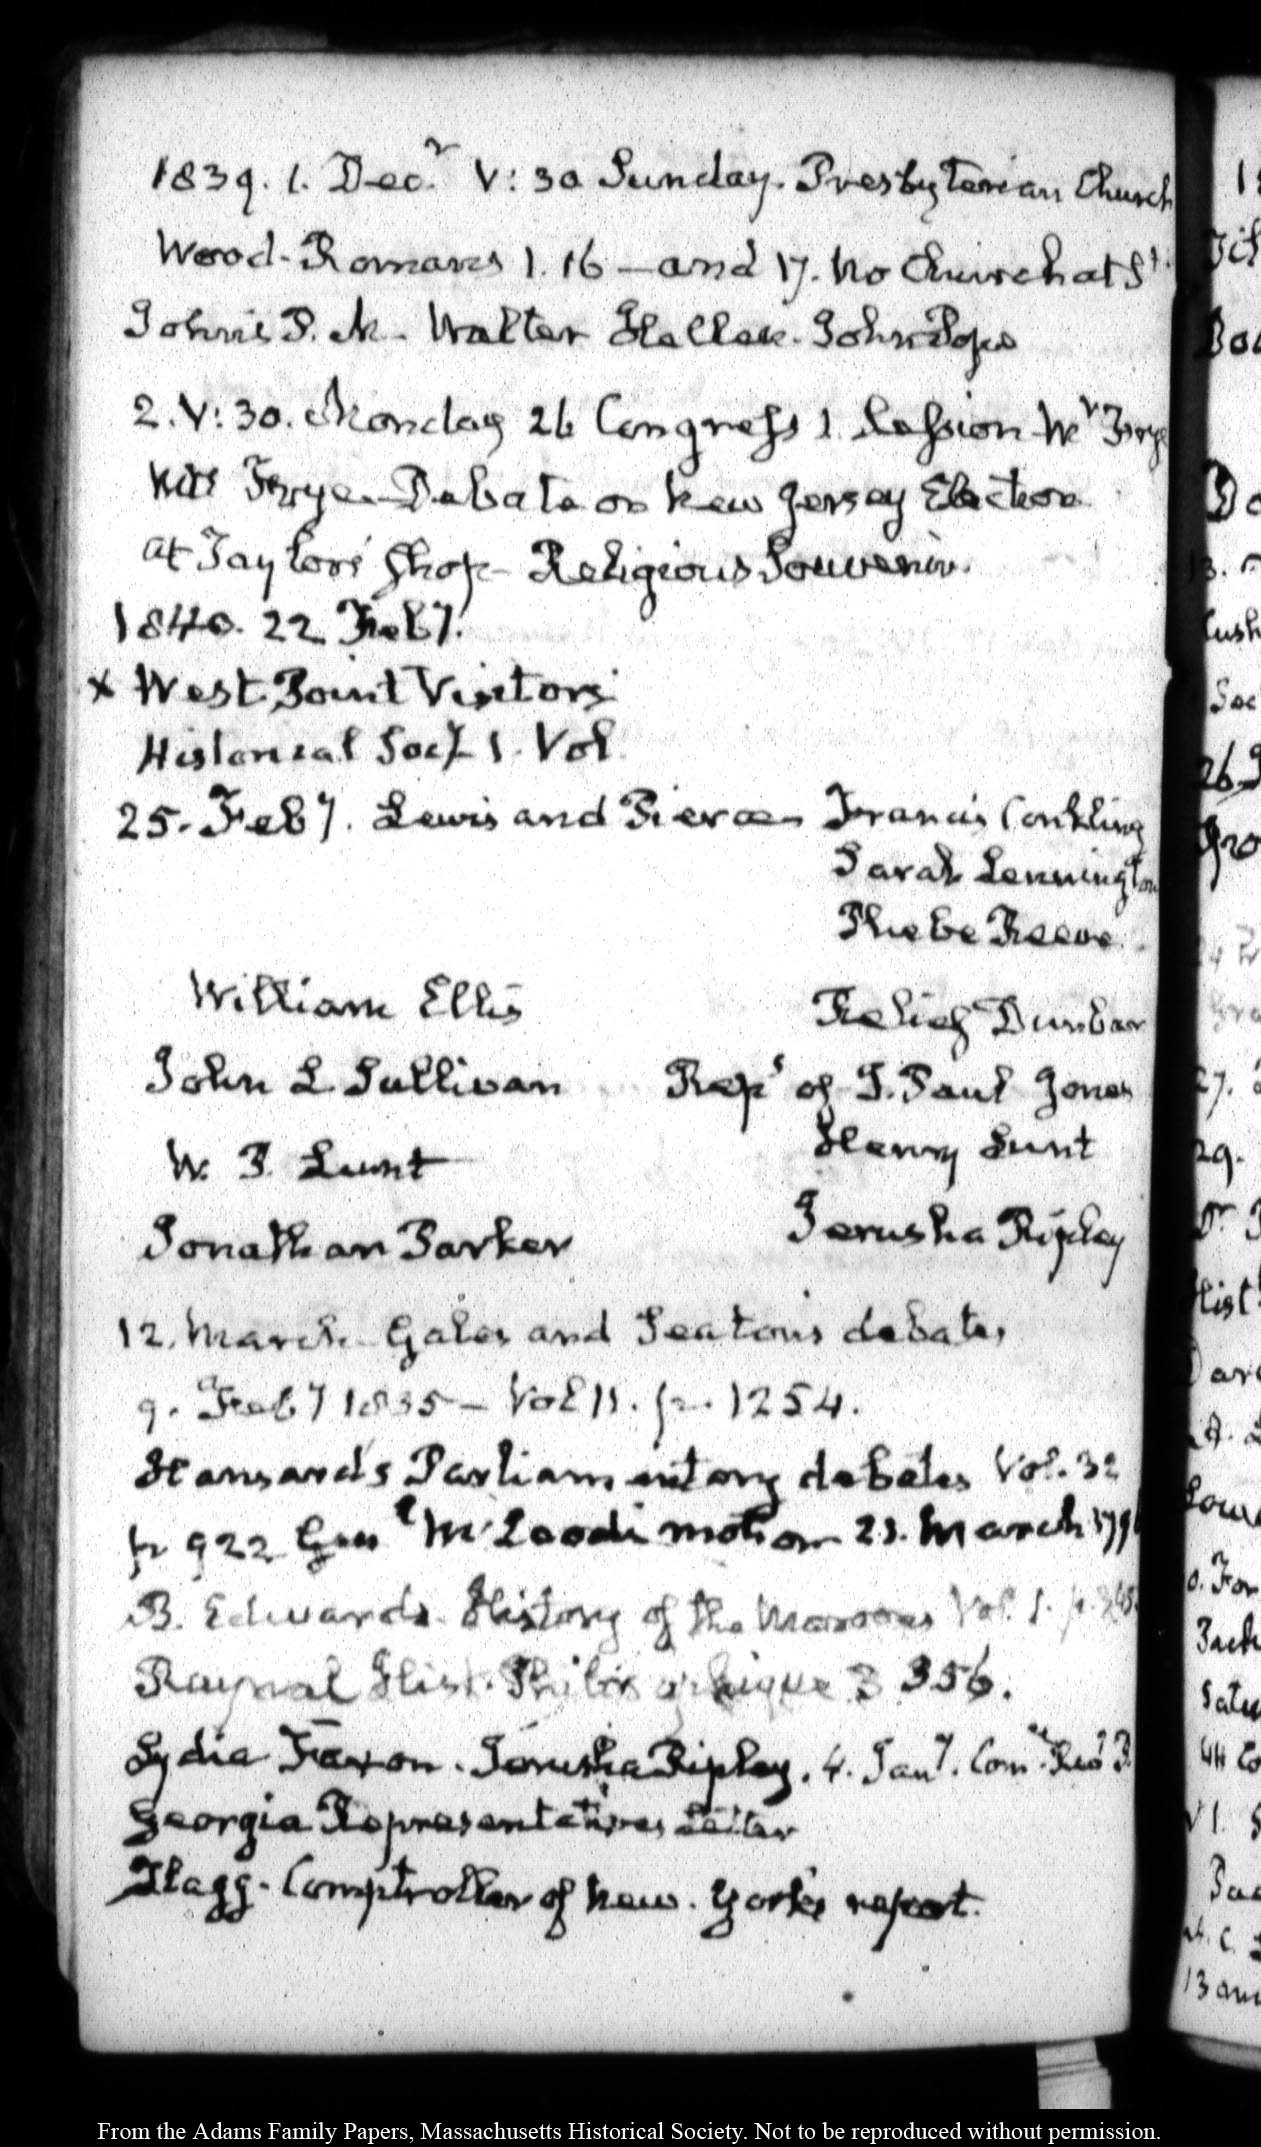 1839. 1. Decr. V:30 Sunday. Presbyterian Church
Wood. Romans 1. 16 — and 17. No Church at St.
John's P.M. Walter Hellen. John Pope
2. V:30. Monday 26 Congress 1. Session Wr Frye
Nat Frye. Debate on New Jersey Election
at Taylors Shop - Religious Souvenir.
1840. 22 Feby.
x West Point Visitors
Historical Socy 1. Vol
25. Feby. Lewis and Pierce Francis Conkling
Sarah Lennington
Phebe Reeve
William Ellis Relief Dunbar
John L Sullivan Reps of J. Paul Jones
W. P. Lunt Henry Lunt
Jonathan Parker Jerusha Ripley
12. March. Gales and Seaton's debates
9. Feby 1835 — Vol 11. p. 1254.
Hansard's Parliamentary debates Vol. 32
p 922 Genl McLeod's motion 21. March 1796
B. Edwards. History of the Maroons Vol. 1. p.
Raynal Hist. Philosophique 3 356.
Lydia Faxon. Jerusha Ripley. 4. Jany. Comee Revy P.
Georgia Representatives letter
Flagg. Comptroller of New. York's report.
18
13.
Cush
Soc
26.
27.
29.
Dr
Hist
Low
From the Adams Family Papers, Massachusetts Historical Society. Not to be reproduced without permission.